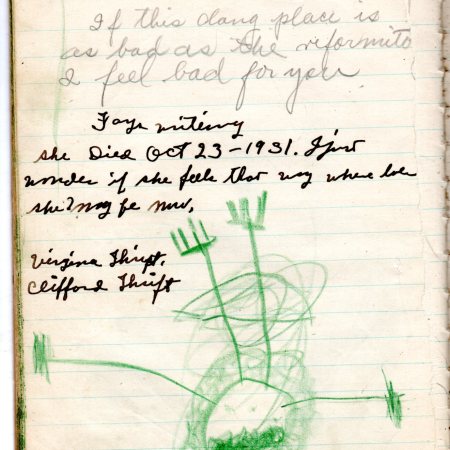 If this dang place is
as bad as the reformito
I feel bad for you
Faye writeing
she Died Oct 23-1931. I just
wonder if she feels that way where ever
she? may be now.
Virgina Thrift.
Clifford Thrift